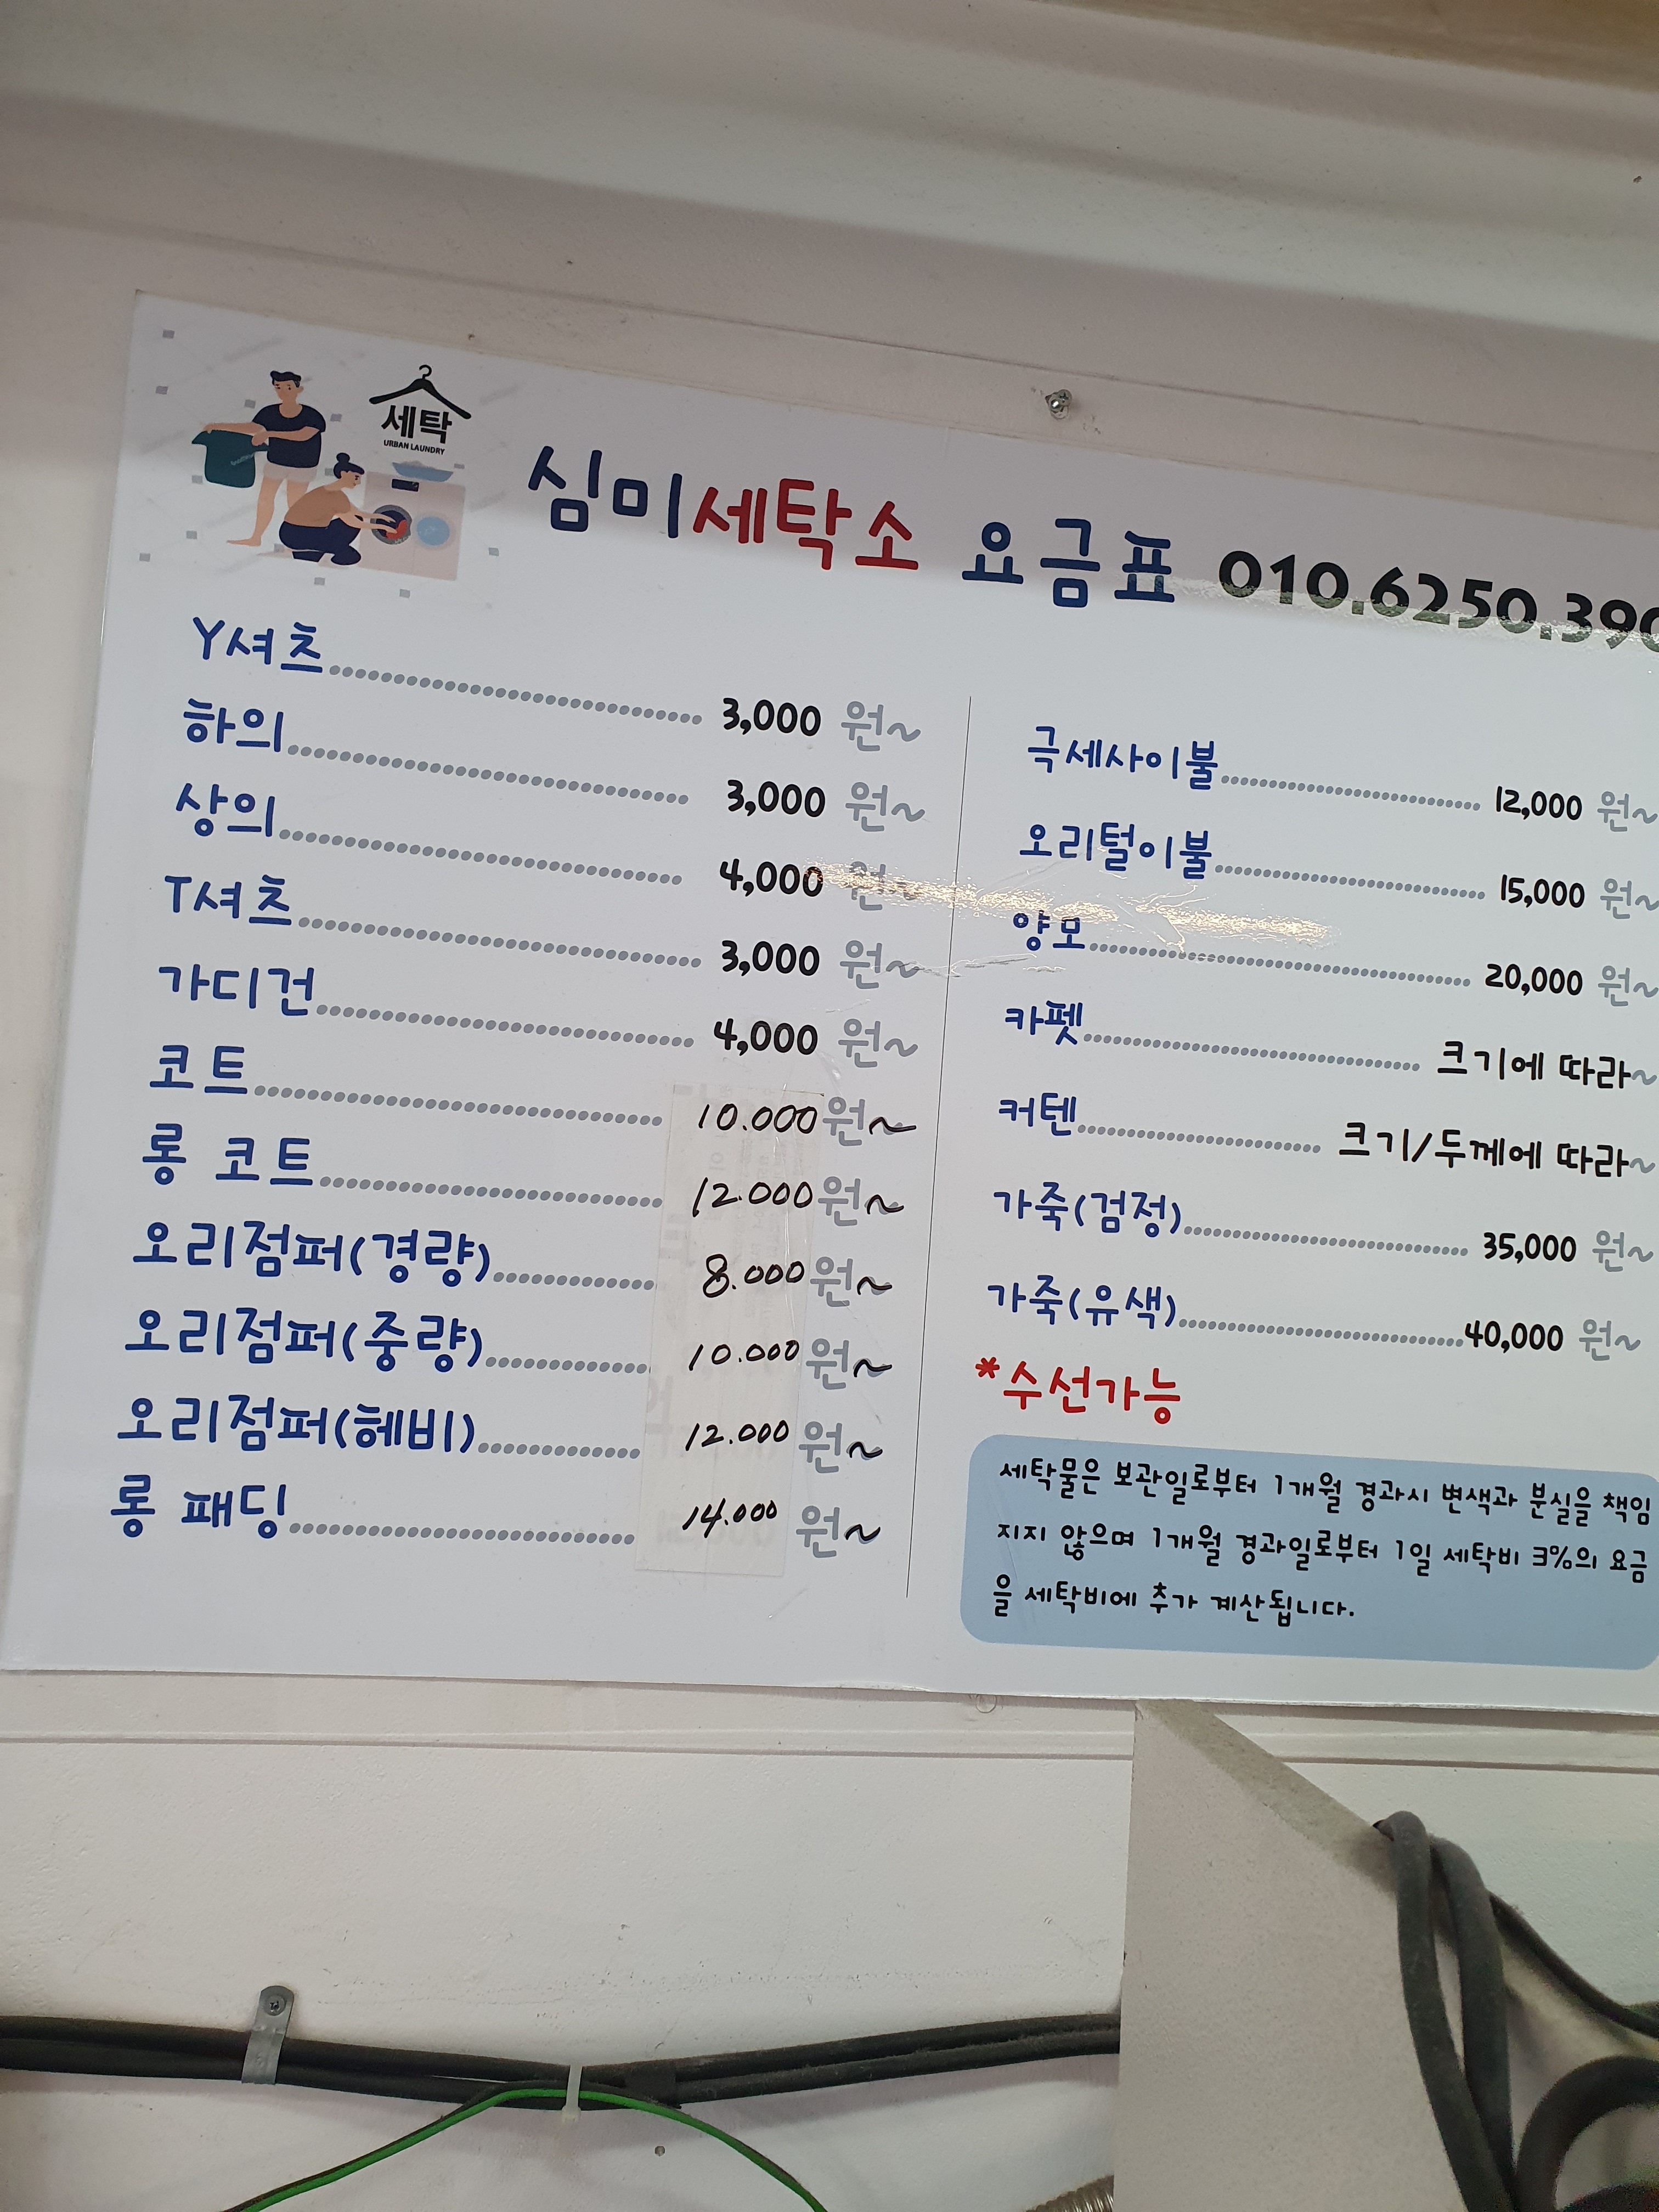 세탁
URBAN LAUNDRY
심미세탁소 요금표 010.6250.390
Y셔츠 3,000 원~
하의 3,000 원~
상의 4,000 원~
T셔츠 3,000 원~
가디건 4,000 원~
코트 10.000원~
롱 코트 12.000원~
오리점퍼(경량) 8.000원~
오리점퍼(중량) 10.000원~
오리점퍼(헤비) 12.000원~
롱 패딩 14.000원~
극세사이불 12,000 원~
오리털이불 15,000 원~
양모 20,000 원~
카펫 크기에 따라~
커텐 크기/두께에 따라~
가죽(검정) 35,000 원~
가죽(유색) 40,000 원~
*수선가능
세탁물은 보관일로부터 1개월 경과시 변색과 분실을 책임
지지 않으며 1개월 경과일로부터 1일 세탁비 3%의 요금
을 세탁비에 추가 계산됩니다.